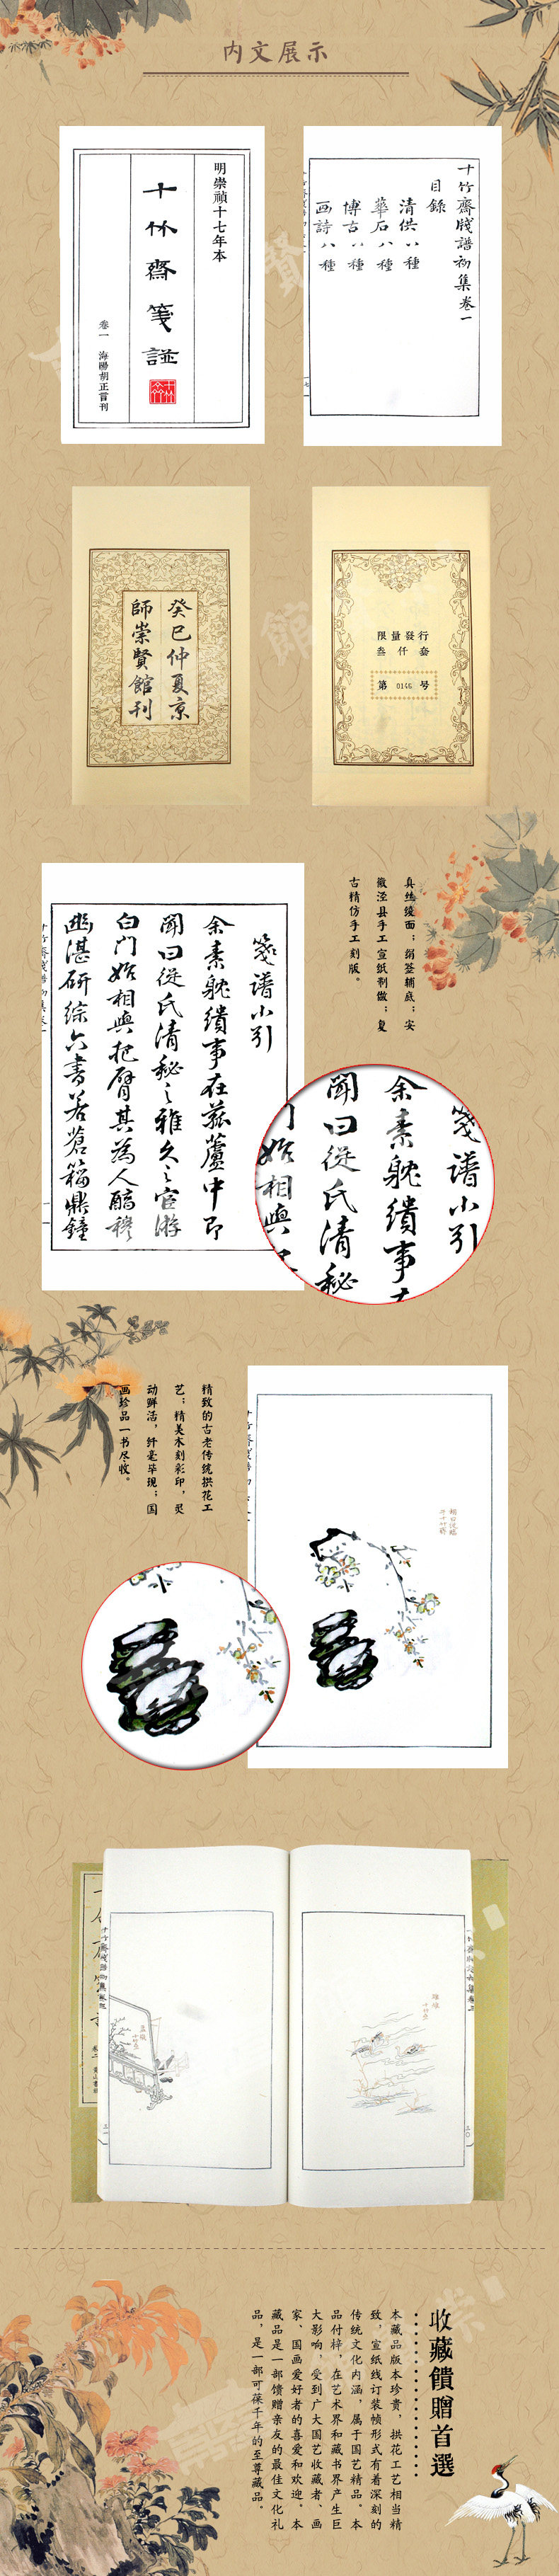 内文展示
明崇禎十七年本
十竹齋箋譜
卷一 海陽胡正言刊
十竹齋牋譜初集卷一
目錄
清供八種
華石八種
博古八種
画詩八種
癸巳仲夏京
師崇賢館刊
限量發行
叁仟套
第 0146 号
真丝绫面；绢签辅底；安
徽泾县手工宣纸制做；复
古精仿手工刻版。
笺譜小引
余素躭繢事在菰蘆中即
聞曰從氏清秘之雅久之宦游
白门始相與把臂其為人醕穆
幽湛研綜六書若蒼籀鼎鐘
笺譜小引
余素躭繢事在
聞曰從氏清秘
始相與把
精致的古老传统拱花工
艺；精美木刻彩印，灵
动鲜活，纤毫毕现；国
画珍品一书尽收。
收藏饋贈首選
本藏品版本珍贵，拱花工艺相当精
致，宣纸线订装帧形式有着深刻的
传统文化内涵，属于国艺精品。本
品付梓，在艺术界和藏书界产生巨
大影响，受到广大国艺收藏者、画
家、国画爱好者的喜爱和欢迎。本
藏品是一部馈赠亲友的最佳文化礼
品，是一部可葆千年的至尊藏品。